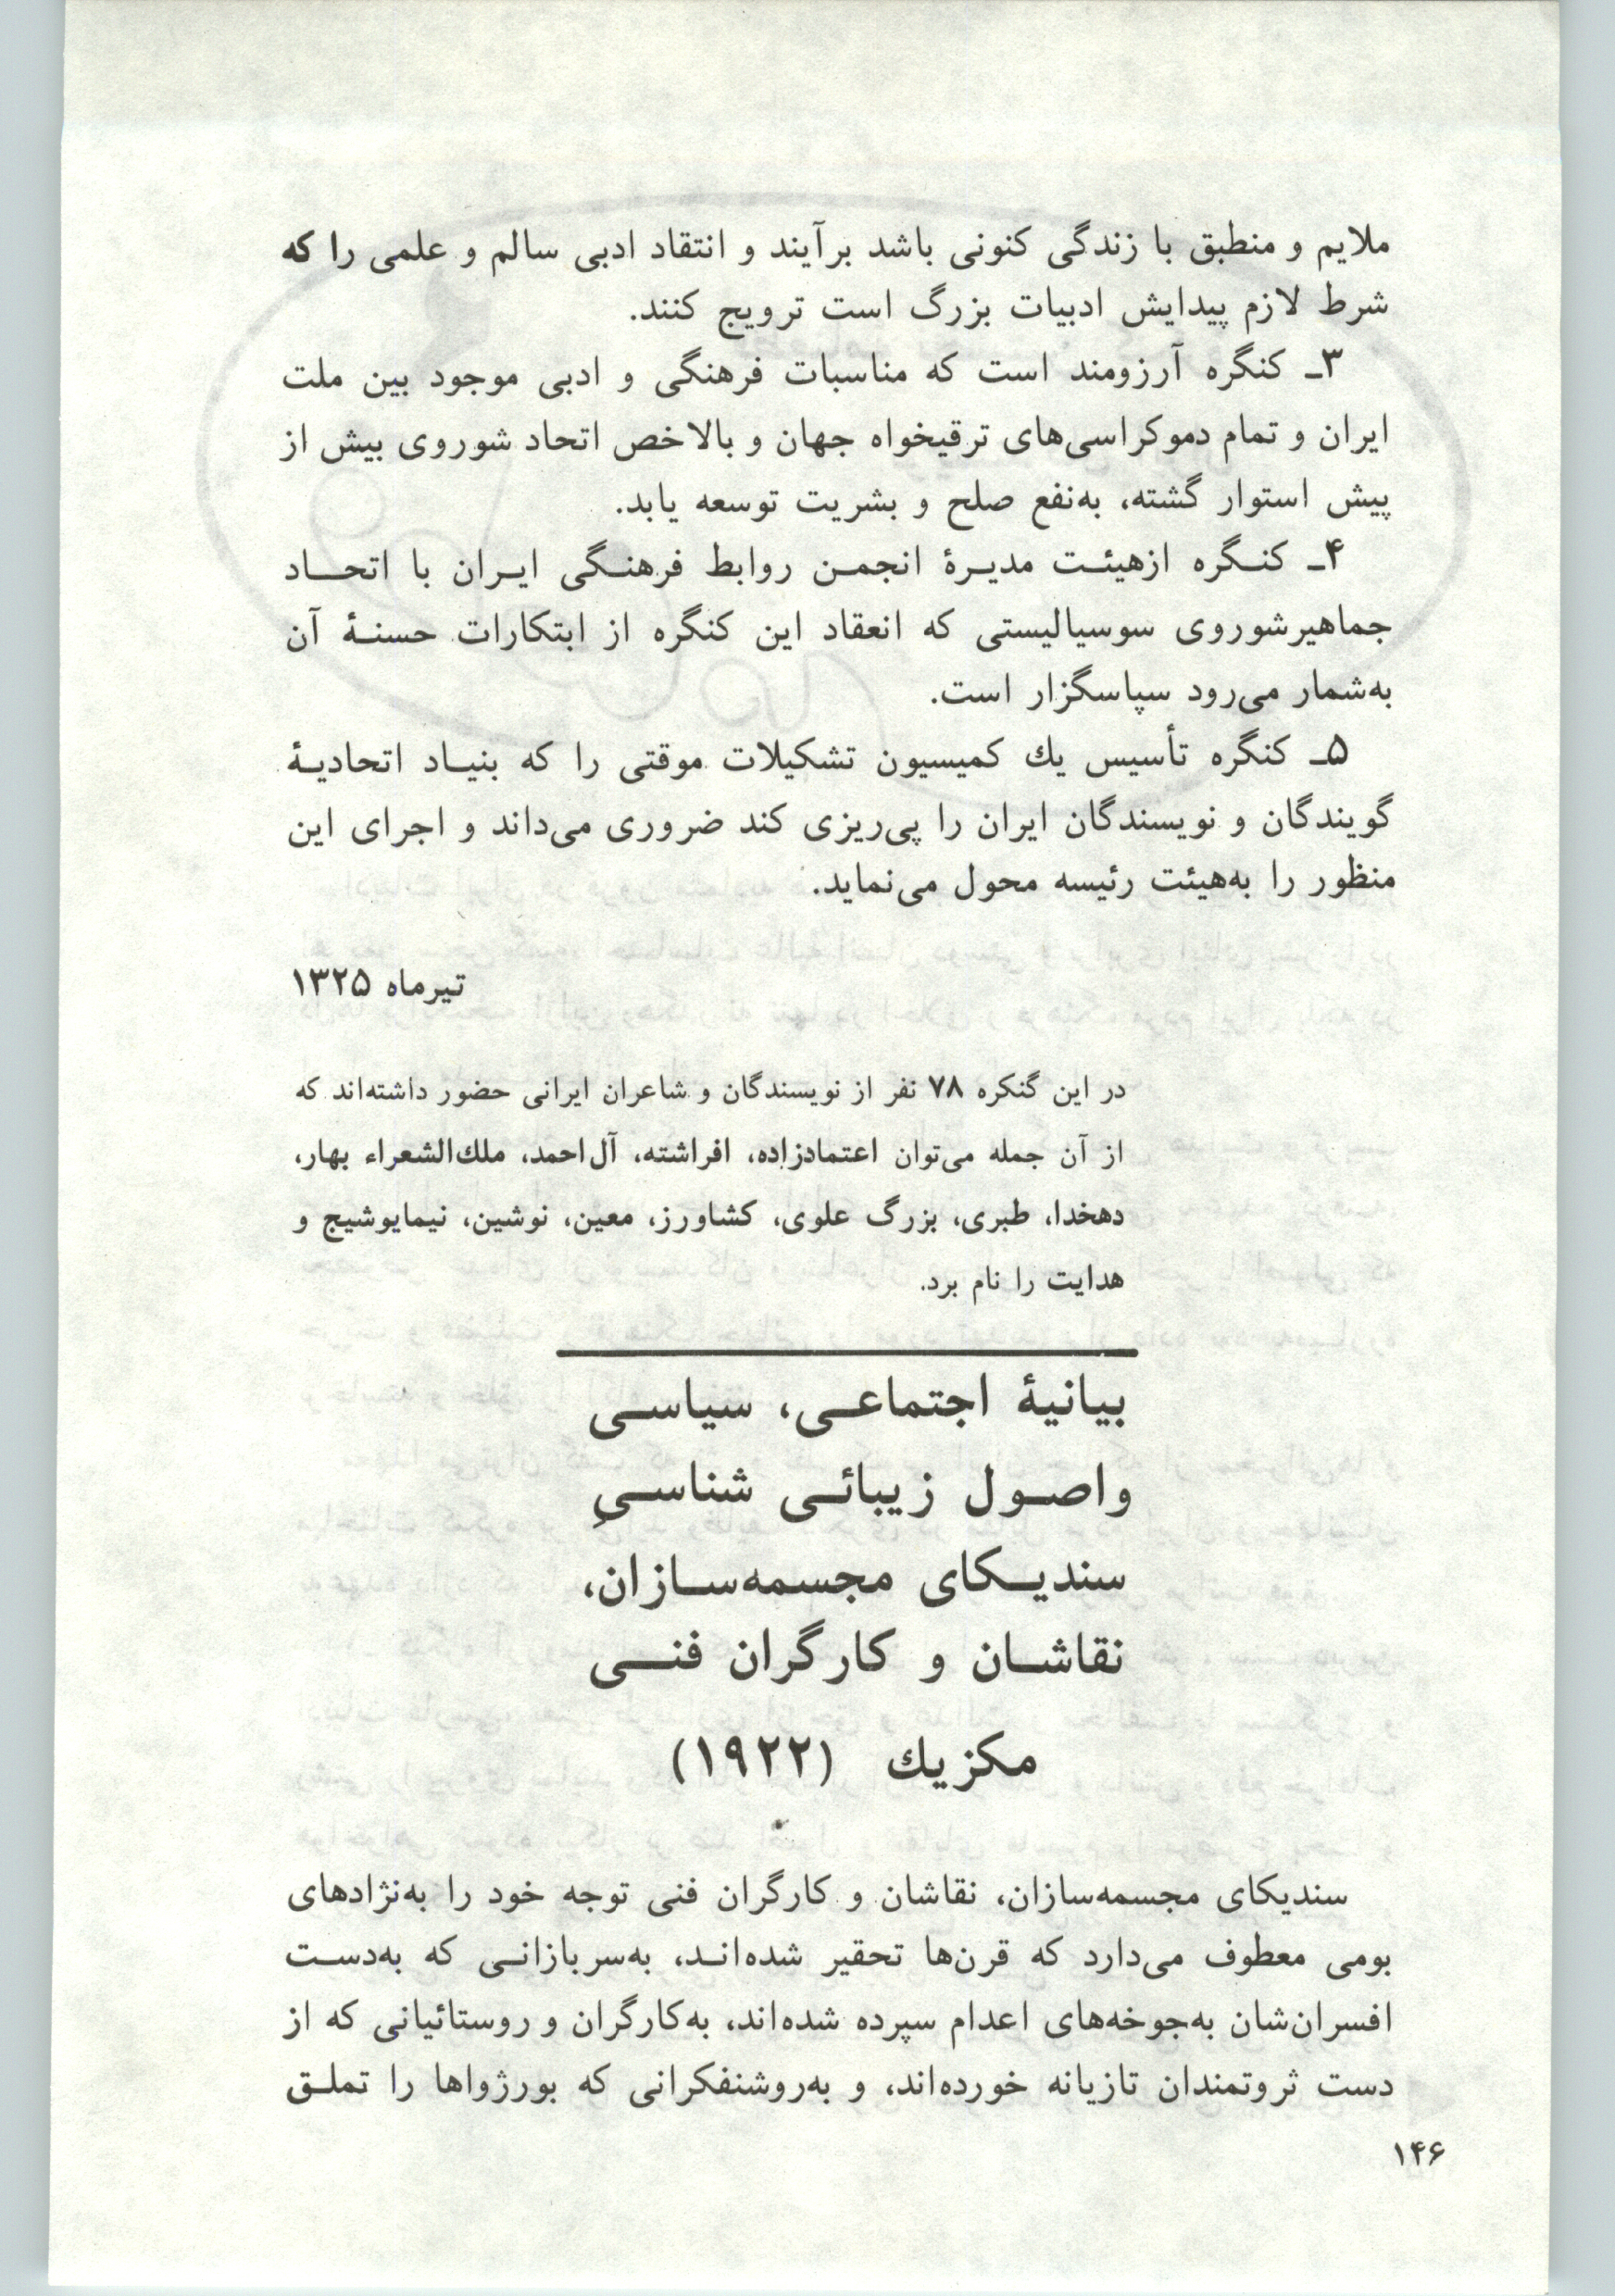 ملایم و منطبق با زندگی کنونی باشد برآیند و انتقاد ادبی سالم و علمی را که
شرط لازم پیدایش ادبیات بزرگ است ترویج کنند.
۳ـ کنگره آرزومند است که مناسبات فرهنگی و ادبی موجود بین ملت
ایران و تمام دموکراسی‌های ترقیخواه جهان و بالاخص اتحاد شوروی بیش از
پیش استوار گشته، به‌نفع صلح و بشریت توسعه یابد.
۴ـ کنـگره ازهیئـت مدیـرۀ انجمـن روابط فرهنـگی ایـران با اتحـــاد
جماهیرشوروی سوسیالیستی که انعقاد این کنگره از ابتکارات حسنـۀ آن
به‌شمار می‌رود سپاسگزار است.
۵ـ کنگره تأسیس یك کمیسیون تشکیلات موقتی را که بنیـاد اتحادیـۀ
گویندگان و نویسندگان ایران را پی‌ریزی کند ضروری می‌داند و اجرای این
منظور را به‌هیئت رئیسه محول می‌نماید.
تیرماه ۱۳۲۵
در این گنکره ۷۸ نفر از نویسندگان و شاعران ایرانی حضور داشته‌اند که
از آن جمله می‌توان اعتمادزاده، افراشته، آل‌احمد، ملك‌الشعراء بهار،
دهخدا، طبری، بزرگ علوی، کشاورز، معین، نوشین، نیمایوشیج و
هدایت را نام برد.
بیانیۀ اجتماعـی، سیاسـی
واصـول زیبائـی شناسـیِ
سندیـکای مجسمه‌سـازان،
نقاشـان و کارگران فنـــی
مکزیك (۱۹۲۲)
سندیکای مجسمه‌سازان، نقاشان و کارگران فنی توجه خود را به‌نژادهای
بومی معطوف می‌دارد که قرن‌ها تحقیر شده‌انـد، به‌سربازانـی که به‌دسـت
افسران‌شان به‌جوخه‌های اعدام سپرده شده‌اند، به‌کارگران و روستائیانی که از
دست ثروتمندان تازیانه خورده‌اند، و به‌روشنفکرانی که بورژواها را تملـق
۱۴۶